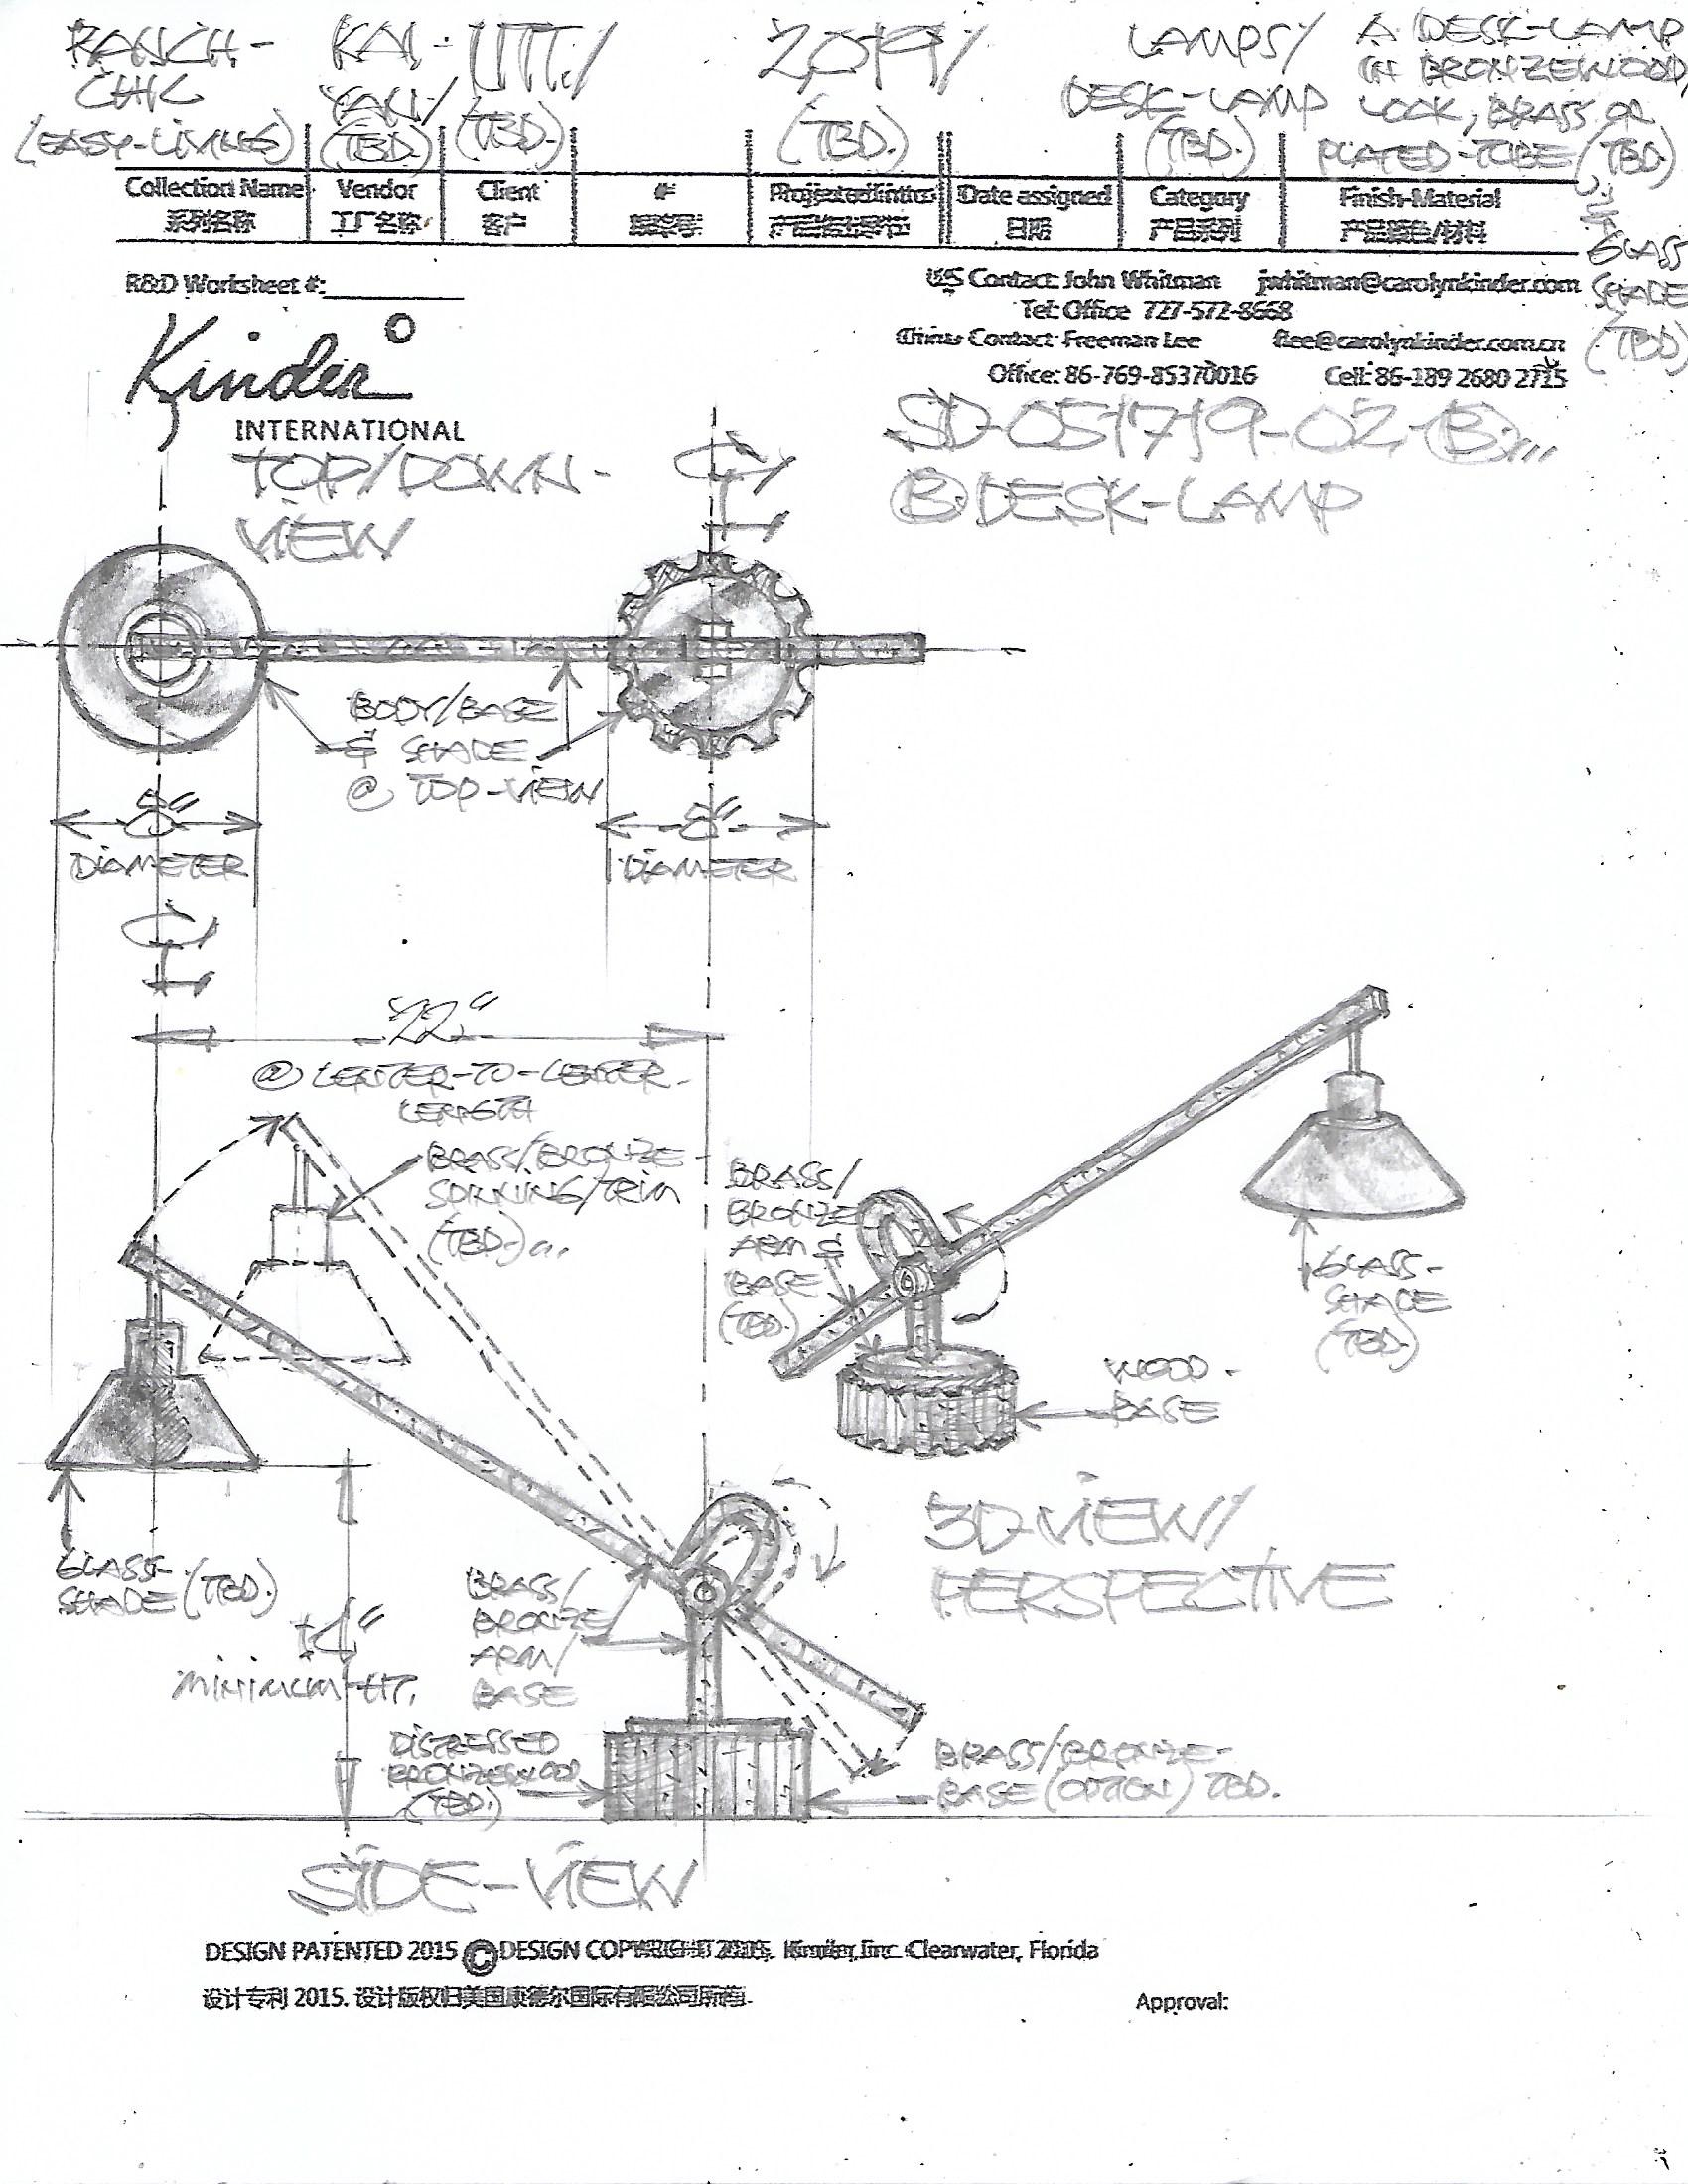 RANCH-
CHIC
(EASY-LIVING)
KAI-
YAU/
(TBD.)
UTT./
(TBD.)
2019/
(TBD.)
LAMPS/
DESK-LAMP
(TBD.)
A DESK-LAMP
IN BRONZEWOOD
LOOK, BRASS OR
PLATED-TUBE (TBD)
GLASS
SHADE
(TBD)
Collection Name
系列名称
Vendor
工厂名称
Client
客户
#
Projected Intro
Date assigned
日期
Category
产品系列
Finish-Material
产品颜色/材料
R&D Worksheet #:
US Contact: John Whitman jwhitman@carolynkinder.com
Tel: Office 727-572-8668
China Contact: Freeman Lee flee@carolynkinder.com.cn
Office: 86-769-85370016 Cell: 86-189 2680 2715
Kinder
INTERNATIONAL
SD-051719-02-B...
B. DESK-LAMP
TOP/DOWN-
VIEW
BODY/BASE
& SHADE
@ TOP-VIEW
8"
DIAMETER
8"
DIAMETER
22"
@ CENTER-TO-CENTER-
LENGTH
BRASS/BRONZE-
SPINNING/TRIM
(TBD.)...
BRASS/
BRONZE
ARM &
BASE
(TBD.)
GLASS-
SHADE
(TBD.)
WOOD-
BASE
3D-VIEW/
PERSPECTIVE
GLASS-
SHADE (TBD.)
MINIMUM-HT.
BRASS/
BRONZE
ARM/
BASE
DISTRESSED
BRONZEWOOD
(TBD.)
BRASS/BRONZE-
BASE (OPTION) TBD.
SIDE-VIEW
DESIGN PATENTED 2015 © DESIGN COPYRIGHT 2015. Kinder, Inc. Clearwater, Florida
设计专利 2015. 设计版权归美国康德尔国际有限公司所有.
Approval: